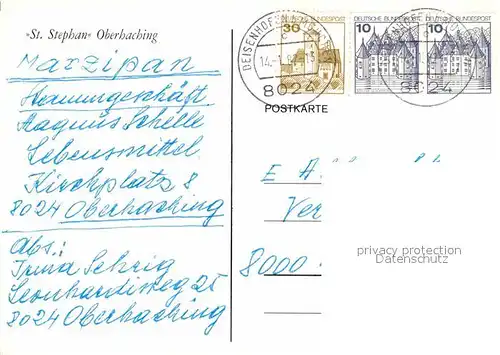 »St. Stephan« Oberhaching
Marzipan
Magnus Schelle
Lebensmittel
Kirchplatz 8
8024 Oberhaching
Abs.:
Irma Schrig
Leonhardiweg 25
8024 Oberhaching
30 DEUTSCHE BUNDESPOST
10 DEUTSCHE BUNDESPOST
10
DEISENHOFEN
8024
8024
POSTKARTE
E A
Ver
8000
privacy protection
Datenschutz